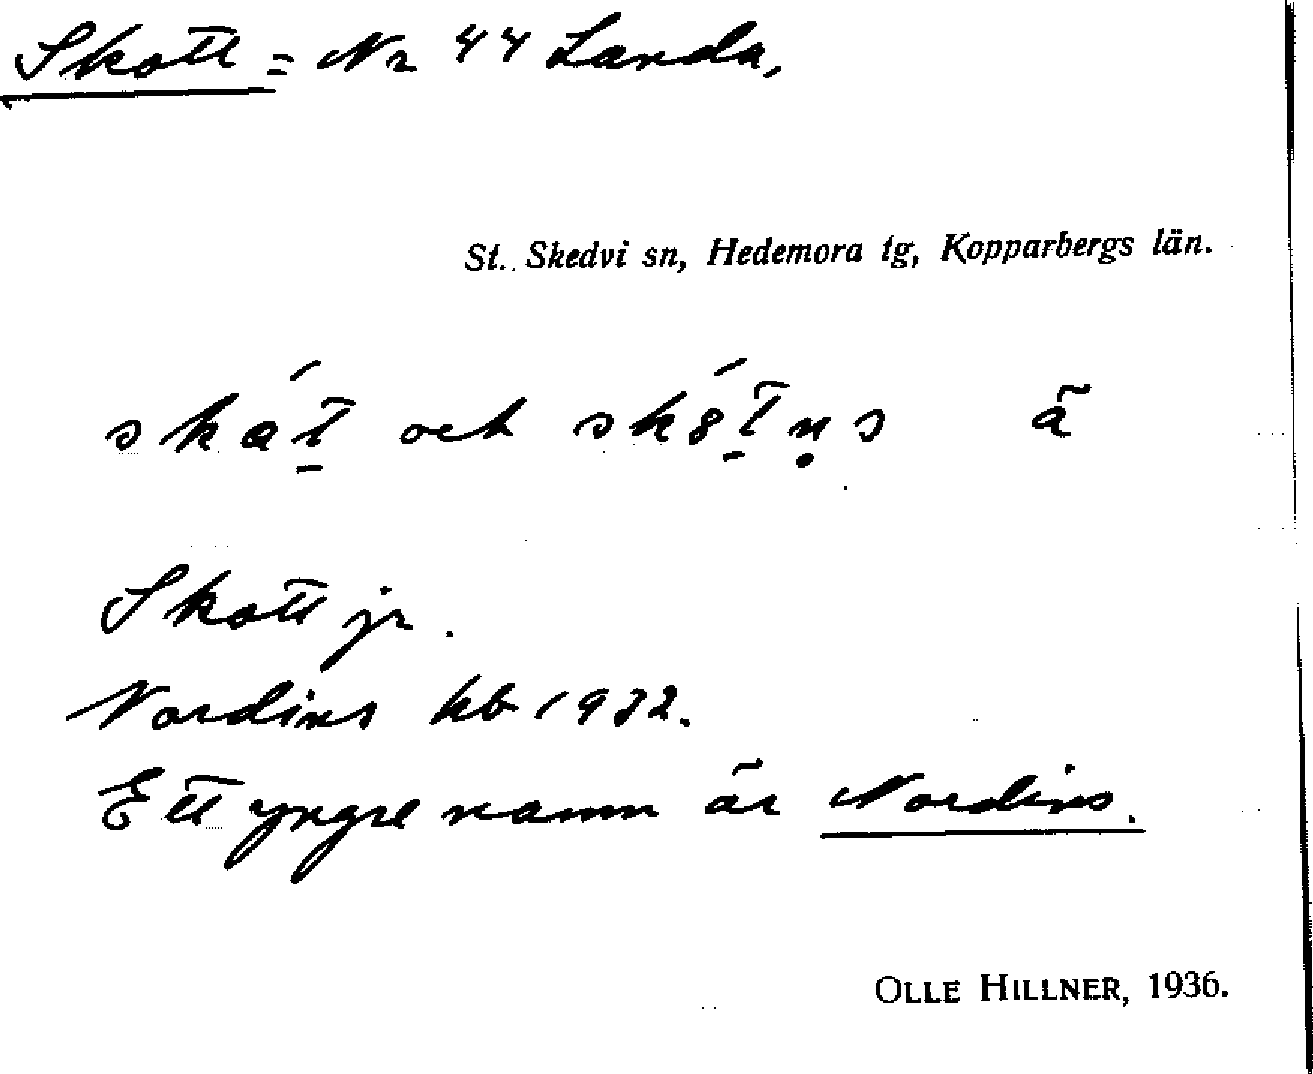 Skott = Nr 44 Landa,
St. Skedvi sn, Hedemora tg, Kopparbergs län.
och ä
Skott jr.
Nordins kb 1932.
Ett yngre namn är Nordins.
OLLE HILLNER, 1936.